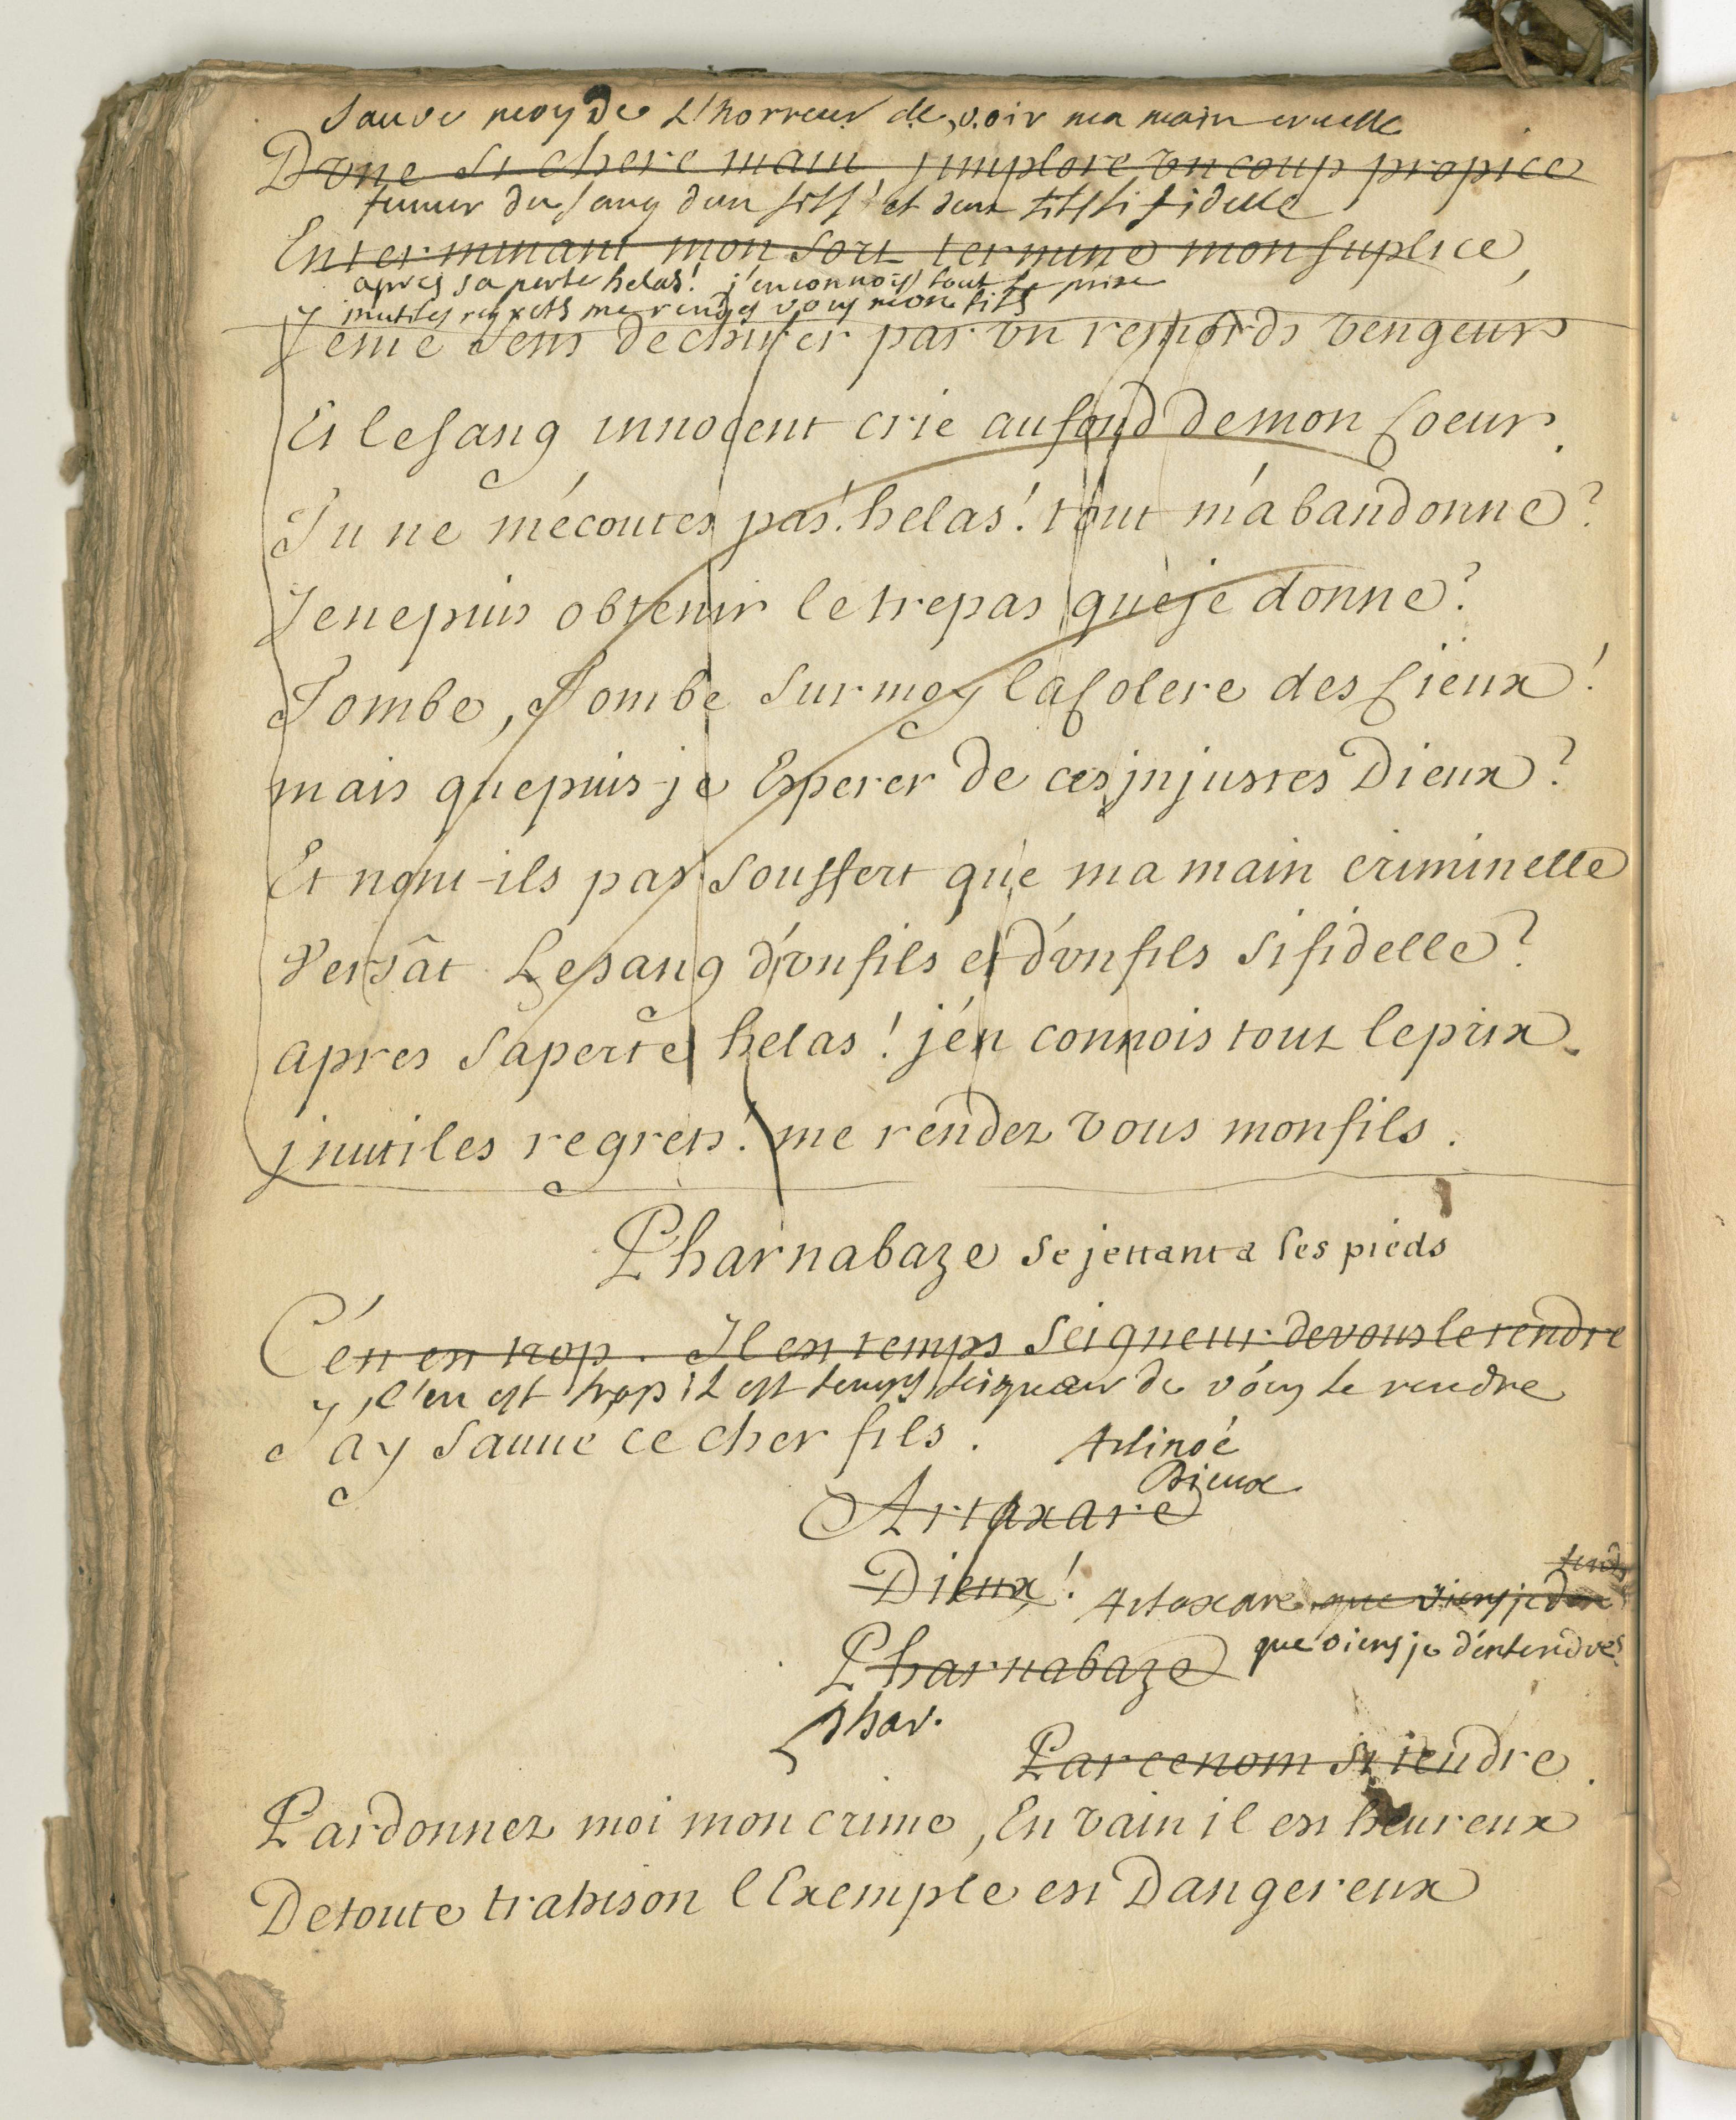 Sauve moy de L'horreur de voir ma main cruelle
D'vne si chere main, j'implore vn coup propice
fumer du sang d'un fils! et d'un fils si fidelle
En terminant mon sort termine mon suplice,
apres sa perte helas! j'en connois tout le prix
inutiles regrets me rendez vous mon fils
Je me sens dechirer par vn remords vengeur
Et le sang innocent crie au fond de mon Coeur.
Tu ne m'écoutes pas! helas! tout m'abandonne?
Je ne puis obtenir le trepas que je donne?
Tombe, Tombe sur moy la Colere des Cieux!
mais que puis-je Esperer de ces jnjustes Dieux?
Et n'ont-ils pas souffert que ma main criminelle
Versât Le sang d'vn fils et d'vn fils si fidelle?
apres sa perte helas! j'en connois tout le prix.
jnutiles regrets! me rendez vous mon fils.
Pharnabaze se jettant a ses pieds
C'en est trop. Il est temps Seigneur de vous le rendre
C'en est trop il est temps seigneur de vous le rendre
J'ay sauué ce cher fils.
Arsinoé
Dieux
Artaxare
Dieux!
tends
Artaxare que viens je den
que viens je d'entendre?
Pharnabaze
Phar.
Par ce nom si tendre.
Pardonnez moi mon crime, En vain il est heureux
De toute trahison l'Exemple est Dangereux